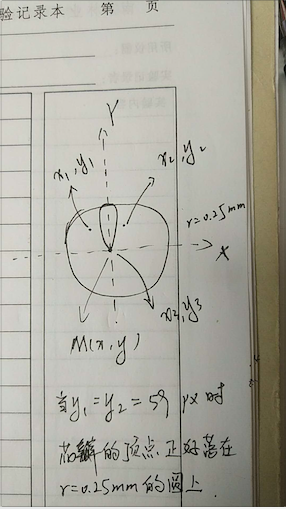 验记录本 第 页
Y
x₁,y₁
x₂,y₂
r=0.25mm
X
x₃,y₃
M(x,y)
当y₁=y₂=59 px 时
花瓣的顶点正好落在
r=0.25mm的圆上.